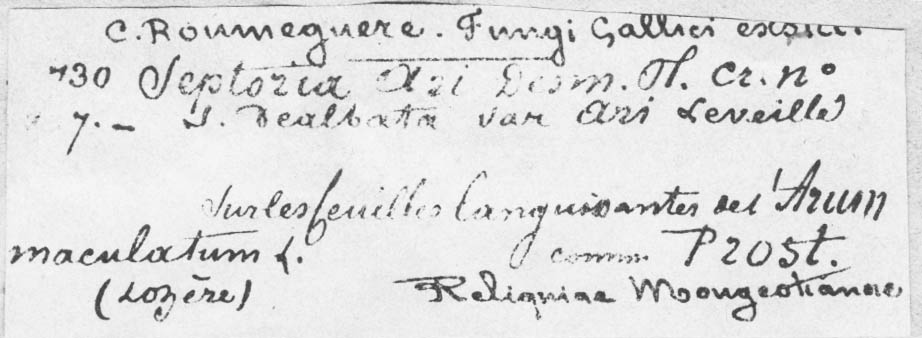 C. Roumeguere. Fungi Gallici exsicc.
730 Septoria Ari Desm. Pl. Cr. n°
7. – S. Dealbata var Ari Leveillé
sur les feuilles languissantes de l'Arum
maculatum L. comm. Prost.
(Lozère) Reliquiae Mougeotianae